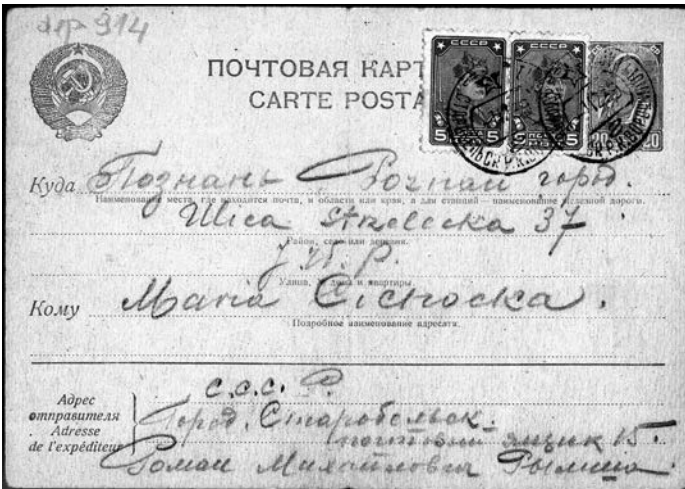 дер 914
СССР СССР
ПОЧТОВАЯ КАРТ
CARTE POSTA
5 5 5 20 20
Куда Познань Poznań город.
Наименование места, где находится почта, и области или края, а для станций – наименование железной дороги.
Ulica Strzelecka 37
Район, село или деревня.
Улица, № дома и квартиры
Кому Maria Cichocka.
Подробное наименование адресата.
С.С.С.Р.
Адрес отправителя
Adresse de l'expéditeur
Город, Старобельск-
почтовый ящик 15.
Роман Михайлович